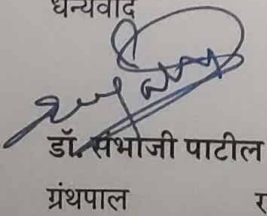 धन्यवाद
डॉ. संभाजी पाटील
ग्रंथपाल